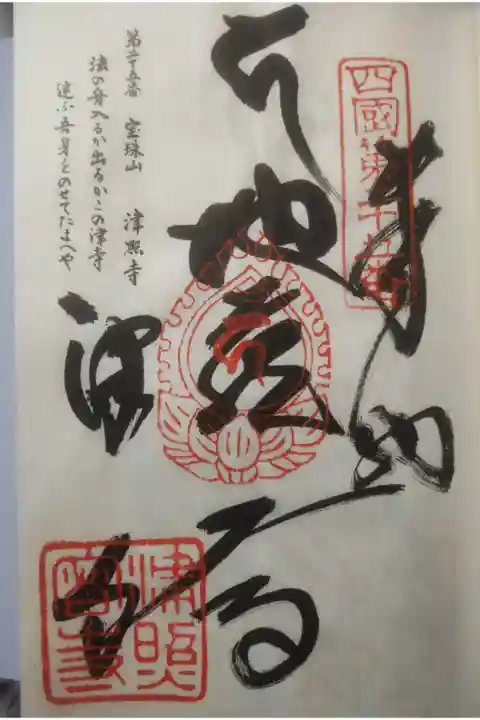 四國第二十五番
奉納
地蔵
津
寺
津照寺
第二十五番 宝珠山 津照寺
法の舟入るか出るかこの津寺
迷ふ吾身をのせてたまへや